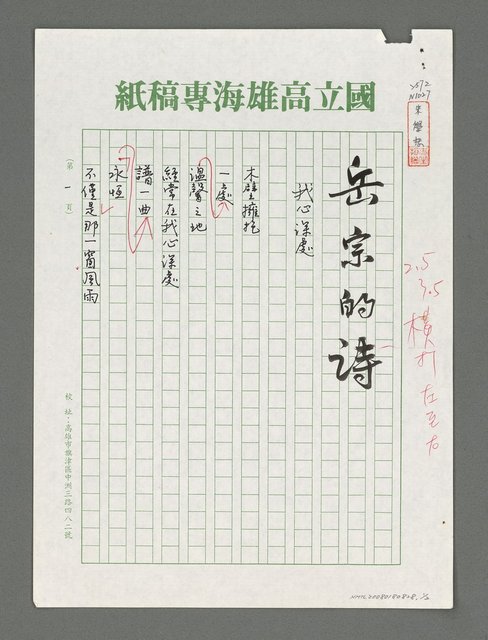 國立高雄海專稿紙
岳宗的詩
我心深處
木壁擁抱
一處
溫馨之地
經常在我心深處
譜一曲
永恆
不僅是那一宵風雨
(第一頁)
校址：高雄市旗津區中洲三路四八二號
2.5
3.5
橫打
左至右
NMTL20080180828, 1/2